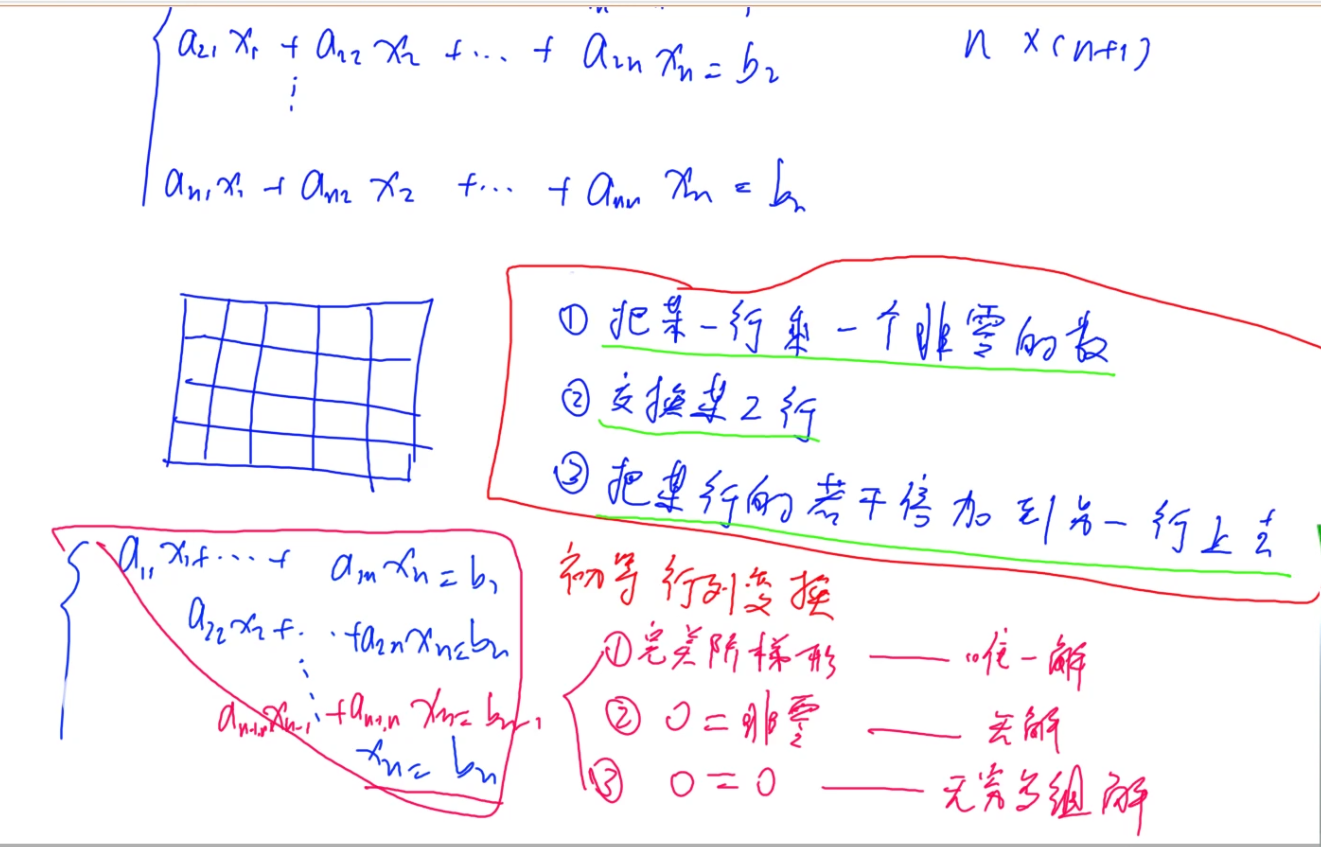 a₂₁ x₁ + a₂₂ x₂ + ... + a₂ₙ xₙ = b₂
n × (n+1)
⋮
aₙ₁ x₁ + aₙ₂ x₂ + ... + aₙₙ xₙ = bₙ
① 把某一行乘一个非零的数
② 交换某2行
③ 把某行的若干倍加到另一行上去
初等行列变换
a₁₁ x₁ + ... + a₁ₙ xₙ = b₁
a₂₂ x₂ + ... + a₂ₙ xₙ = bₙ
⋮
aₙ₋₁,ₙ₋₁ xₙ₋₁ + aₙ₋₁,ₙ xₙ = bₙ₋₁
xₙ = bₙ
① 完美阶梯形 —— 唯一解
② 0 = 非零 —— 无解
③ 0 = 0 —— 无穷多组解